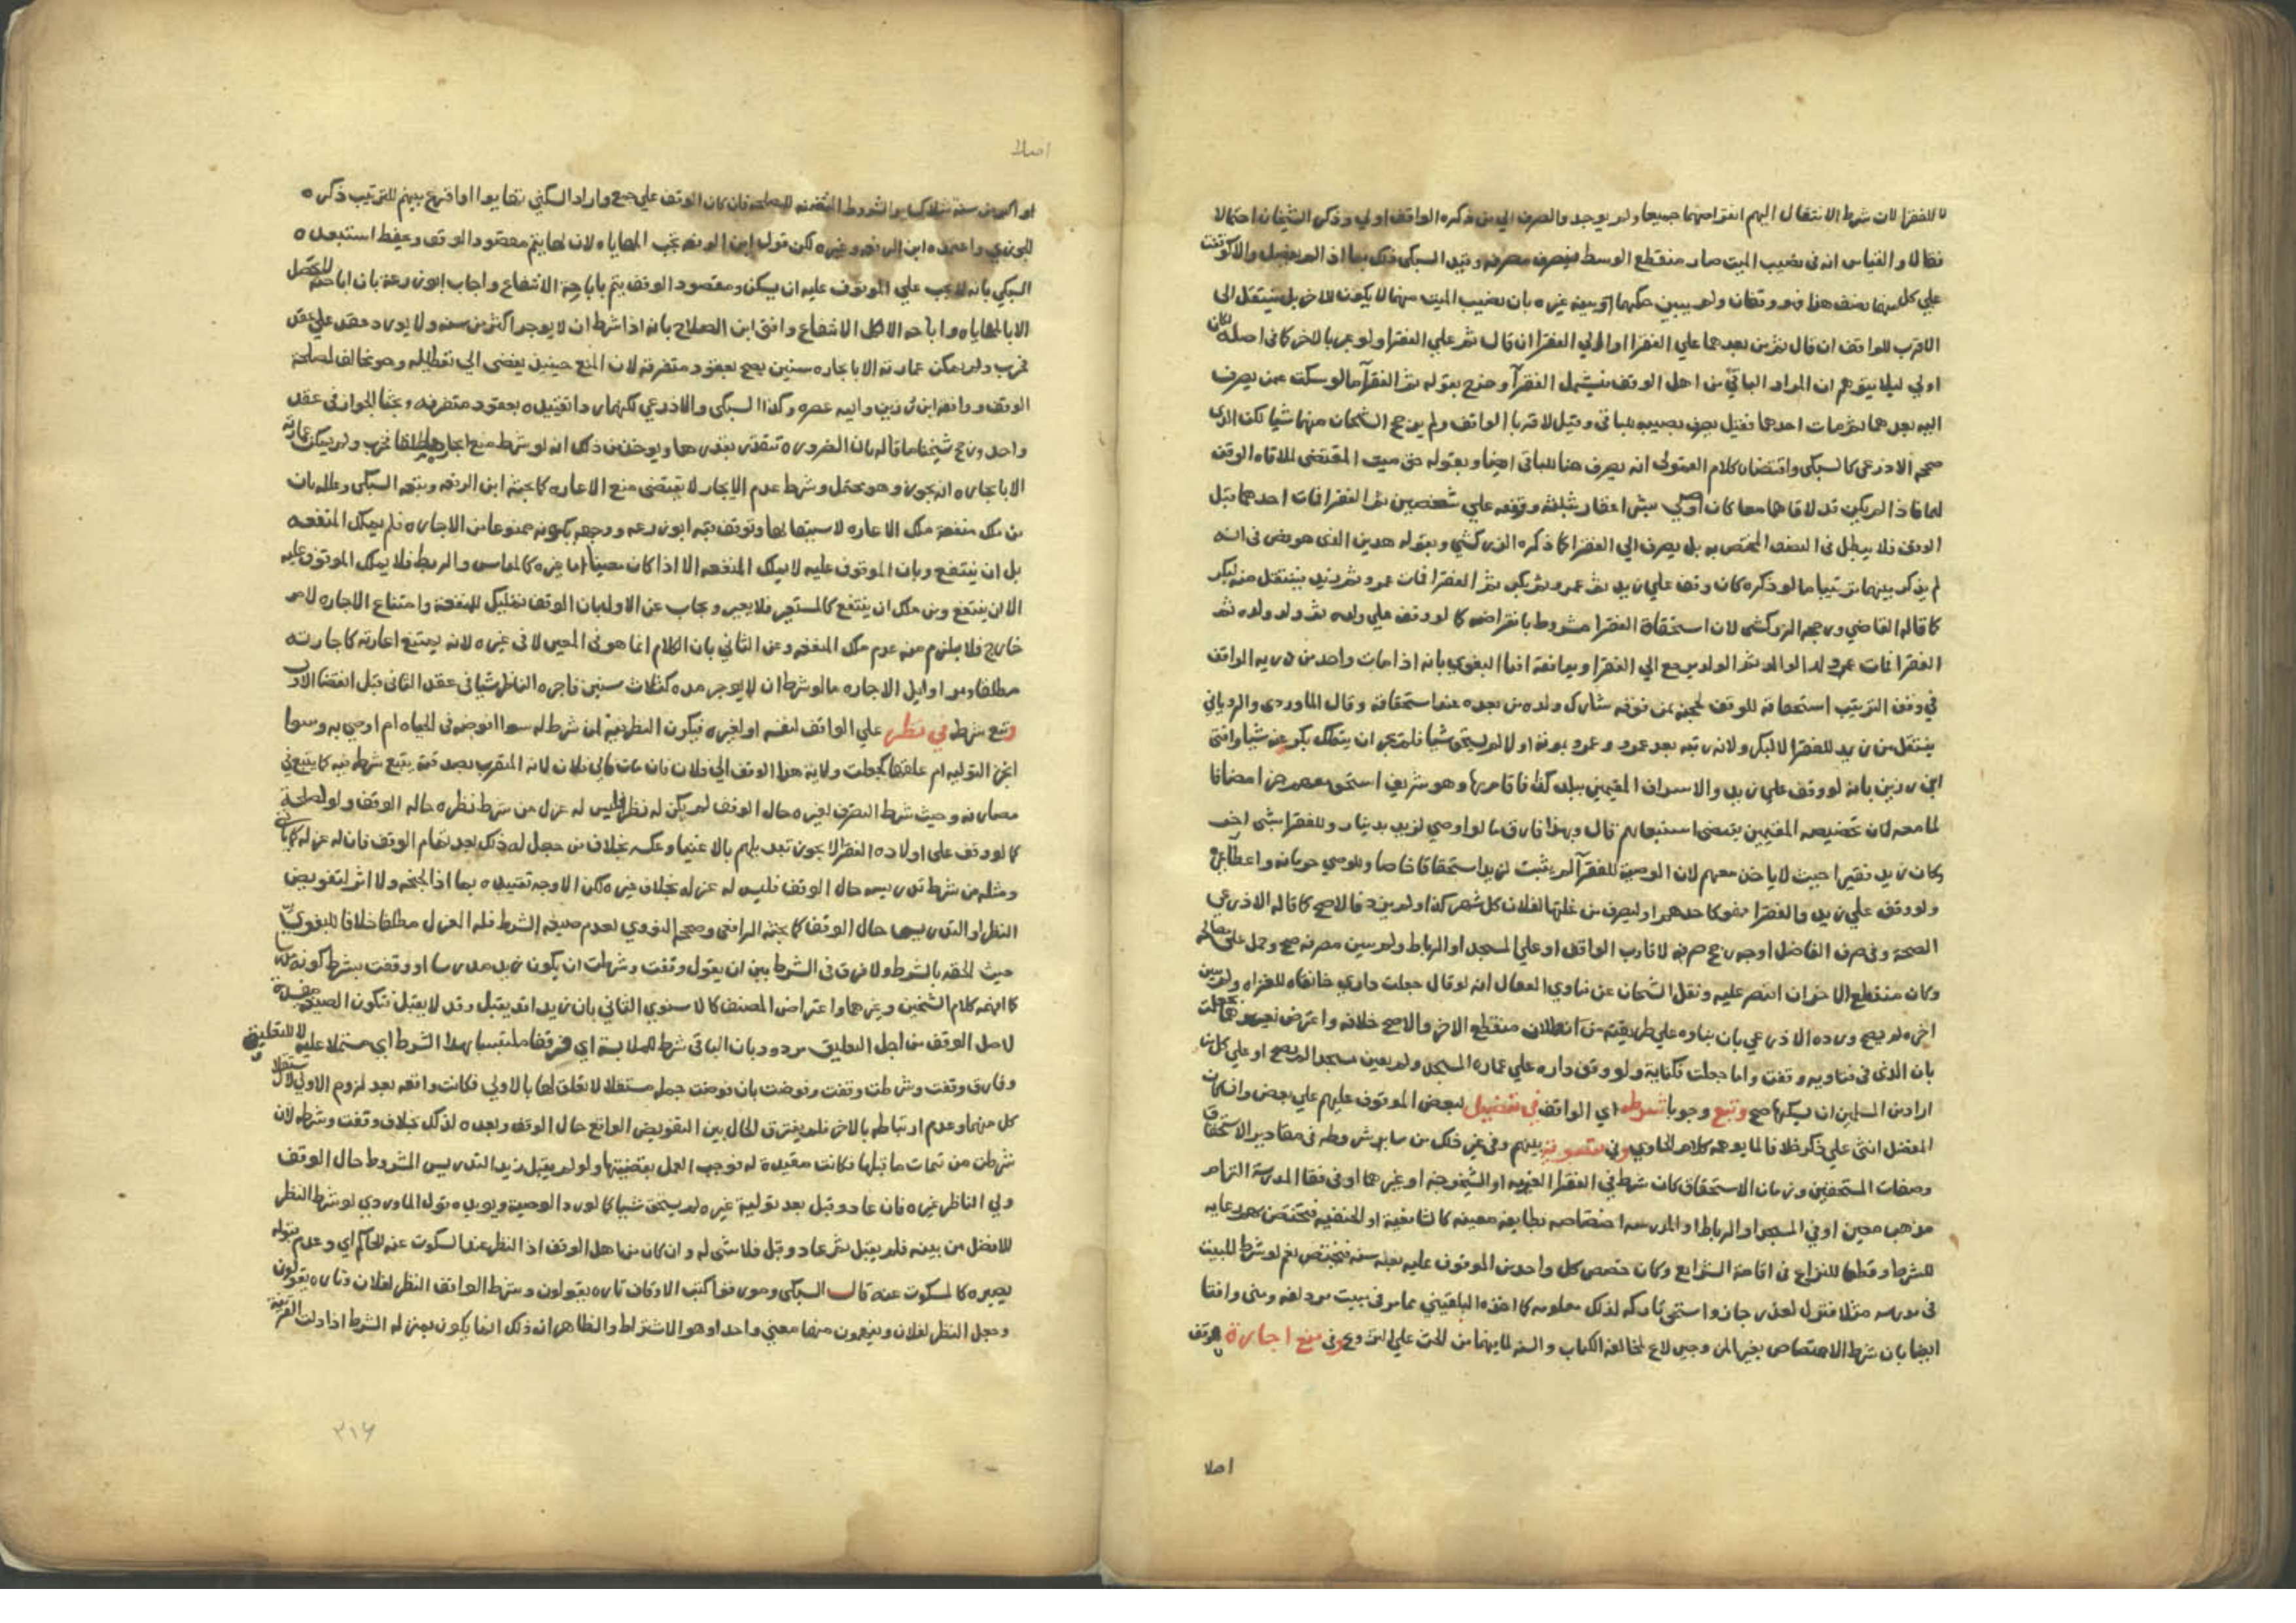 لا للفقرا لان شرط الانتقال اليهم انقراضهما جميعا ولم يوجد والصرف الي من ذكره الواقف اولي وذكر الشيخان احتمالا
نقالا والقياس انه في نصيب الميت صار منقطع الوسط فيصرف مصرفه وقيد السبكي ذلك بما اذا لم يفصل والا كوقفت
علي كل منهما نصف هذا فهو وقفان ولم يبين حكمهما بان نصيب الميت منهما لا يكون للاخر بل ينتقل الي
الاقرب للواقف ان قال ثم من بعدهما علي الفقرا اوالي الفقرا ان قال ثم علي الفقرا ولو عبر بالاخر كما في اصله لكان
اولي ليلا يتوهم ان المراد الباقي من اهل الوقف فيشمل الفقرآ وخرج بقوله ثم الفقرآ ما لو سكت عمن يصرف
اليه بعدهما ثم مات احدهما فقيل يصرف نصيبه للباقي وقيل لاقربا الواقف ولم يرجح الشيخان منهما شيا لكن الذي
صححه الاذرعي كالسبكي واقتضاه كلام المتولي انه يصرف هنا للباقي ايضا وبقوله حق ميت المقتضي لملاقاه الوقف
لهما ما اذا لم يكن قد لاقاهما معا كان اوصي بشرا عقار بثلثه ووقفه علي شخصين ثم الفقرا فمات احدهما قبل
الوقف فلا يبطل في النصف المختص به بل يصرف الي الفقرا كما ذكره الزركشي وبقوله هدين الذي هو نص في انه
لم يذكر بينهما ترتيبا ما لو ذكره كان وقف علي زيد ثم عمرو ثم بكر ثم الفقرا فمات عمرو ثم زيد فينتقل منه لبكر
كما قاله القاضي ورجحه الزركشي لان استحقاق الفقرا مشروط بانقراضه كما لو وقف علي ولده ثم ولد ولده ثم
الفقرا فمات ولد الولد ثم الولد يرجع الي الفقرا ويوافقه افتا البغوي بانه اذا مات واحد من ذريه الواقف
في وقف الترتيب استحقاقه للوقف لحجبه بمن فوقه شارك ولده من بعده عند استحقاقه وقال الماوردي والروياني
ينتقل من زيد للفقرا لا لبكر ولانه رتبه بعد عمرو وعمرو بموته اولا لم يستحق شيا فلم يجز ان يتملك بكر عنه شيا وافتي
ابن رزين بانه لو وقف علي زيد والاشراف المقيمين ببلد كذا فاقام بها وهو شريف استحق معهم
لما معه لان تخصيصه المقيمين يقتضي استيعابهم قال وبهذا فارق ما لو اوصي لزيد بدينار وللفقرا بشي اخر
وكان زيد فقيرا حيث لا ياخذ معهم لان الوصية للفقرآ لم يثبت لزيد استحقاقا خاصا وللوصي حرمانه واعطا غيره
ولو وقف علي زيد والفقرا فهو كاحدهم او ليصرف من غلتها لفلان كل شهر كذا ولم يزد فالاصح كما قاله الاذرعي
الصحة وفي صرف الفاضل اوجه رجح صرفه لاقارب الواقف او علي المسجد او الرباط ولم يبين مصرفه صح وحمل علي مصالحه
وكان منقطع الاخر ان اقتصر عليه ونقل الشيخان عن فتاوي القفال انه لو قال جعلت داري خانقاه للغزاه ولم يبين
اخره لم يصح ورده الاذرعي بان بناوه علي طريقته من بطلان منقطع الاخر والاصح خلافه واعترض
بان الذي في فتاويه وقفت واما جعلت فكنايه ولو وقف داره علي عماره المسجد ولم يعين مسجدا لم يصح او علي كل من
اراد من المسلمين ان يسكنها صح وتبع وجوبا شرطه اي الواقف في تفضيل لبعض الموقوف عليهم علي بعض وان كان
المفضل انثي علي ذكر خلافا لما يوهمه كلام الحاوي وفي تسوية بينهم وفي غير ذلك من ساير شروطه في مقادير الاستحقاق
وصفات المستحقين وزمان الاستحقاق كان شرط في الفقرا الغربه او الشيخوخه او غيرهما او في فقها المدرسة التزام
مذهب معين او في المسجد او الرباط او المدرسه اختصاصه بطايفه معينه كالشافعية او الحنفيه فتختص بهم رعايه
للشرط وقطعا للنزاع في اقامة الشرايع وكان خصص كل واحد من الموقوف عليه بغلة سنه فيختص نعم لو شرط المبيت
في مدرسه مثلا فنزول لعذر جاز واستحق تاركه لذلك معلومه كما اخذه البلقيني مما مر في مبيت مزدلفه ومني وافتا
ايضا بان شرط الاختصاص بغير المتزوجين لاغ لمخالفة الكتاب والسنه لما فيهما من الحث علي التزوج وفي منع اجارة لموقف
اصلا
اصلا
او اكثر من سنة مثلا كساير الشروط المتضمنه للمصلحه فان كان الوقف علي جمع واراد السكني تهايوا او اقرع بينهم للترتيب ذكره
واعتمده ابن الرفعه وغيره لكن قول ابن الوفعه تجب المهاياه لان بها يتم مقصود الوقف وحفظ استبعده
السبكي بانه لا يجب علي الموقوف عليه ان يسكن ومقصود الوقف يتم باباحة الانتفاع واجاب ابو زرعة بان اباحته للكل لا تحصل
الا بالمهاياه واباحه الاكل الانتفاع وافتي ابن الصلاح بانه اذا شرط ان لا يوجر اكثر من سنه ولا يورد عقد علي عقد
فخرب ولم يمكن عمارته الا باجاره سنين يصح بعقود متفرقه لان المنع حينيذ يفضي الي تعطيله وهو مخالف لمصلحة
الوقف ووافقه ابن رزين وايمه عصره وكذا السبكي والاذرعي لكنهما ردا تقييده بعقود متفرقه وبحثا الجواز في عقد
واحد ورجح شيخنا ما قاله بان الضروره تتقدر بقدرها ويوخذ من ذلك انه لو شرط منع اجارها مطلقا فخرب ولم يمكن عمارته
الا باجاره انه يجوز وهو محتمل وشرط عدم الايجار لا يقتضي منع الاعاره كما بحثه ابن الرفعه وتبعه السبكي وعلله بان
من ملك منفعة ملك الاعاره لا سيتها وتوقف فيه ابو زرعه ووجهه بكونه ممنوعا من الاجاره فلم يملك المنفعه
بل ان ينتفع وبان الموقوف عليه لا يملك المنفعه الا اذا كان معينا اما غيره كالمدارس والربط فلا يملك الموقوف عليه
الا ان ينتفع ومن ملك ان ينتفع كالمستعير فلا يعير ويجاب عن الاول بان الوقف تمليك للمنفعة وامتناع الاجاره لامر
خارج فلا يلزم منه عدم ملك المنفعه وعن الثاني بان الكلام انما هو في المعين لا في غيره لانه يمتنع اعارته كاجارته
مطلقا ومر اوايل الاجاره ما لو شرط ان لا يوجر مده كثلاث سنين فاجره الناظر شيا في عقد الثاني قبل انقضا الاول
وتبع شرطه في نظر علي الواقف لنفسه او لغيره فيكون النظر فيه لمن شرط له سوا افوضه في الحياه ام اوصي به وسوا
انجز التوليه ام علقها كجعلت ولاية هذا الوقف الي فلان فان مات فالي فلان لانه المتقرب بصدقته يتبع شرطه فيه كما يتبع في
مصارفه وحيث شرط التصرف لغيره حال الوقف لم يكن له نظر فليس له عزل من شرط نظره حاله الوقف ولو لمصلحة
كما لو وقف علي اولاده الفقرا لا يجوز تبديلهم بالاغنيا وعكسه بخلاف من جعل له ذلك بعد تمام الوقف فان له عزله كما ياتي
ومثله من شرط تدريسه حال الوقف فليس له عزله بخلاف غيره لكن الاوجه تقييده بما اذا لجنحه ولا اثر لتفويض
النظر او التدريس حال الوقف كما بحثه الرافعي وصححه النووي لعدم صيغه الشرط فله العزل مطلقا خلافا للبغوي
حيث الحقه بالشرط ولا فرق في الشرط بين ان يقول وقفت وشرطت ان يكون زيد مدرسا او وقفت بشرط كونه مدرسا
كما افهمه كلام الشيخين وغيرهما واعتراض المصنف كالاسنوي الثاني بان زيدا قد يقبل وقد لا يقبل فتكون الصيغه مفسدة
لاصل الوقف من اجل التعليق مردود بان الباقي شرط للملابسة اي وقفا ملتبسا بهذا الشرط اي مشتملا عليه لا للتعليق
وفارق وقفت وشرطت وقفت وفوضت بان فوضت جمله مستقله لا تعلق لها بالاولي فكانت واقعه بعد لزوم الاولي لاستقلال
كل منهما وعدم ارتباطه بالاخر فلم يفترق الحال بين التفويض الواقع حال الوقف وبعده لذلك بخلاف وقفت وشرطه لان
شرطت من تتمات ما قبلها فكانت مقيدة له فوجب العمل بقضيتها ولو لم يقبل زيد التدريس المشروط حال الوقف
ولي الناظر غيره فان عاد وقبل بعد تولية غيره لم يستحق شيا كما لو رد الوصية ويويده قول الماوردي لو شرط النظر
للافضل من بنيه فلم يقبل ثم عاد وقبل فلا شي له وان كان من اهل الوقف اذ النظر عند السكوت عنه للحاكم اي وعدم قبوله
يصيره كالمسكوت عنه قال السبكي وموروفوا كتب الاوقاف تاره يقولون وشرط الواقف النظر لفلان وتاره يقولون
وجعل النظر لفلان ويزعمون منهما معني واحدا وهو الاشتراط والظاهر ان ذلك انما يكون بمنزله الشرط اذا دلت القرينة
٣١٦